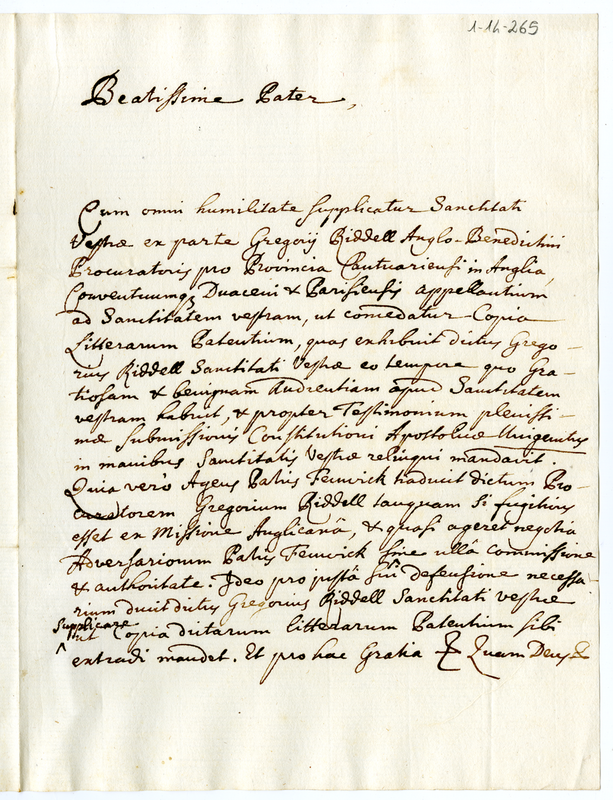 1-14-265
Beatissime Pater,
Cum omni humilitate supplicatur Sanctitati
Vestræ ex parte Gregorij Riddell Anglo-Benedictini
Procuratoris pro Provincia Cantuariensi in Anglia,
Conventuumq, Duaceni & Parisiensis appellantium
ad Sanctitatem vestram, ut comedatur Copia
Litterarum Patentium, quas exhibuit dictus Grego-
rius Riddell Sanctitati Vestræ eo tempore quo Gra-
tiosam & benignam Audientiam apud Sanctitatem
vestram habuit, & propter Testimonium plenissi-
mæ submissionis Constitutioni Apostolicæ Unigenitus
in manibus Sanctitatis Vestræ relinqui mandavit.
Quia verò Agens Patris Fenwick traducit dictum Pro-
curatorem Gregorium Riddell tanquam si fugitivus
esset ex Missione Anglicanâ, & quasi ageret negotia
Adversariorum Patris Fenwick sine ullâ commissione
& authoritate. Ideo pro justâ sui defensione necessa-
rium ducit dictus Gregorius Riddell Sanctitati vestræ
supplicare
ut Copia dictarum litterarum Patentium sibi
extradi mandet. Et pro hac Gratia & Quam Deus &